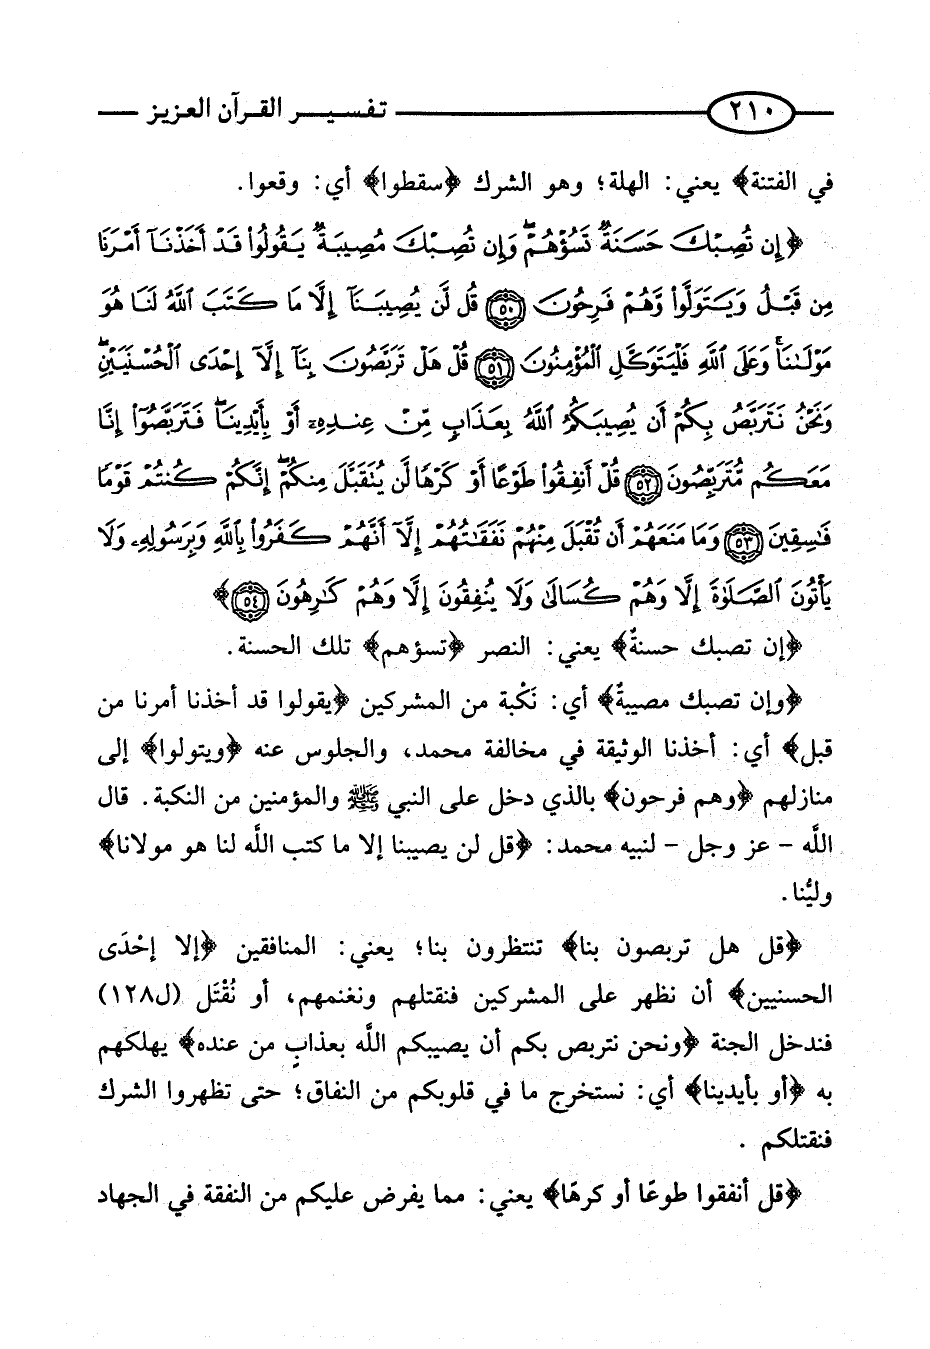 ٢١٠ تفسير القرآن العزيز
في الفتنة﴾ يعني: الهلة؛ وهو الشرك ﴿سقطوا﴾ أي: وقعوا.
﴿إِن تُصِبْكَ حَسَنَةٌ تَسُؤْهُمْ ۖ وَإِن تُصِبْكَ مُصِيبَةٌ يَقُولُوا۟ قَدْ أَخَذْنَآ أَمْرَنَا
مِن قَبْلُ وَيَتَوَلَّوا۟ وَّهُمْ فَرِحُونَ ٥٠ قُل لَّن يُصِيبَنَآ إِلَّا مَا كَتَبَ ٱللَّهُ لَنَا هُوَ
مَوْلَىٰنَا ۚ وَعَلَى ٱللَّهِ فَلْيَتَوَكَّلِ ٱلْمُؤْمِنُونَ ٥١ قُلْ هَلْ تَرَبَّصُونَ بِنَآ إِلَّآ إِحْدَى ٱلْحُسْنَيَيْنِ ۖ
وَنَحْنُ نَتَرَبَّصُ بِكُمْ أَن يُصِيبَكُمُ ٱللَّهُ بِعَذَابٍ مِّنْ عِندِهِۦٓ أَوْ بِأَيْدِينَا ۖ فَتَرَبَّصُوٓا۟ إِنَّا
مَعَكُم مُّتَرَبِّصُونَ ٥٢ قُلْ أَنفِقُوا۟ طَوْعًا أَوْ كَرْهًا لَّن يُتَقَبَّلَ مِنكُمْ ۖ إِنَّكُمْ كُنتُمْ قَوْمًا
فَـٰسِقِينَ ٥٣ وَمَا مَنَعَهُمْ أَن تُقْبَلَ مِنْهُمْ نَفَقَـٰتُهُمْ إِلَّآ أَنَّهُمْ كَفَرُوا۟ بِٱللَّهِ وَبِرَسُولِهِۦ وَلَا
يَأْتُونَ ٱلصَّلَوٰةَ إِلَّا وَهُمْ كُسَالَىٰ وَلَا يُنفِقُونَ إِلَّا وَهُمْ كَـٰرِهُونَ ٥٤﴾
﴿إن تصبك حسنةٌ﴾ يعني: النصر ﴿تسؤهم﴾ تلك الحسنة.
﴿وإن تصبك مصيبةٌ﴾ أي: نَكْبة من المشركين ﴿يقولوا قد أخذنا أمرنا من
قبل﴾ أي: أخذنا الوثيقة في مخالفة محمد، والجلوس عنه ﴿ويتولوا﴾ إلى
منازلهم ﴿وهم فرحون﴾ بالذي دخل على النبي ﷺ والمؤمنين من النكبة. قال
اللَّه - عز وجل - لنبيه محمد: ﴿قل لن يصيبنا إلا ما كتب الله لنا هو مولانا﴾
وليُّنا.
﴿قل هل تربصون بنا﴾ تنتظرون بنا؛ يعني: المنافقين ﴿إلا إحْدَى
الحسنيين﴾ أن نظهر على المشركين فنقتلهم ونغنمهم، أو نُقْتَل (ل١٢٨)
فندخل الجنة ﴿ونحن نتربص بكم أن يصيبكم اللَّه بعذابٍ من عنده﴾ يهلكهم
به ﴿أو بأيدينا﴾ أي: نستخرج ما في قلوبكم من النفاق؛ حتى تظهروا الشرك
فنقتلكم .
﴿قل أنفقوا طوعًا أو كرهًا﴾ يعني: مما يفرض عليكم من النفقة في الجهاد